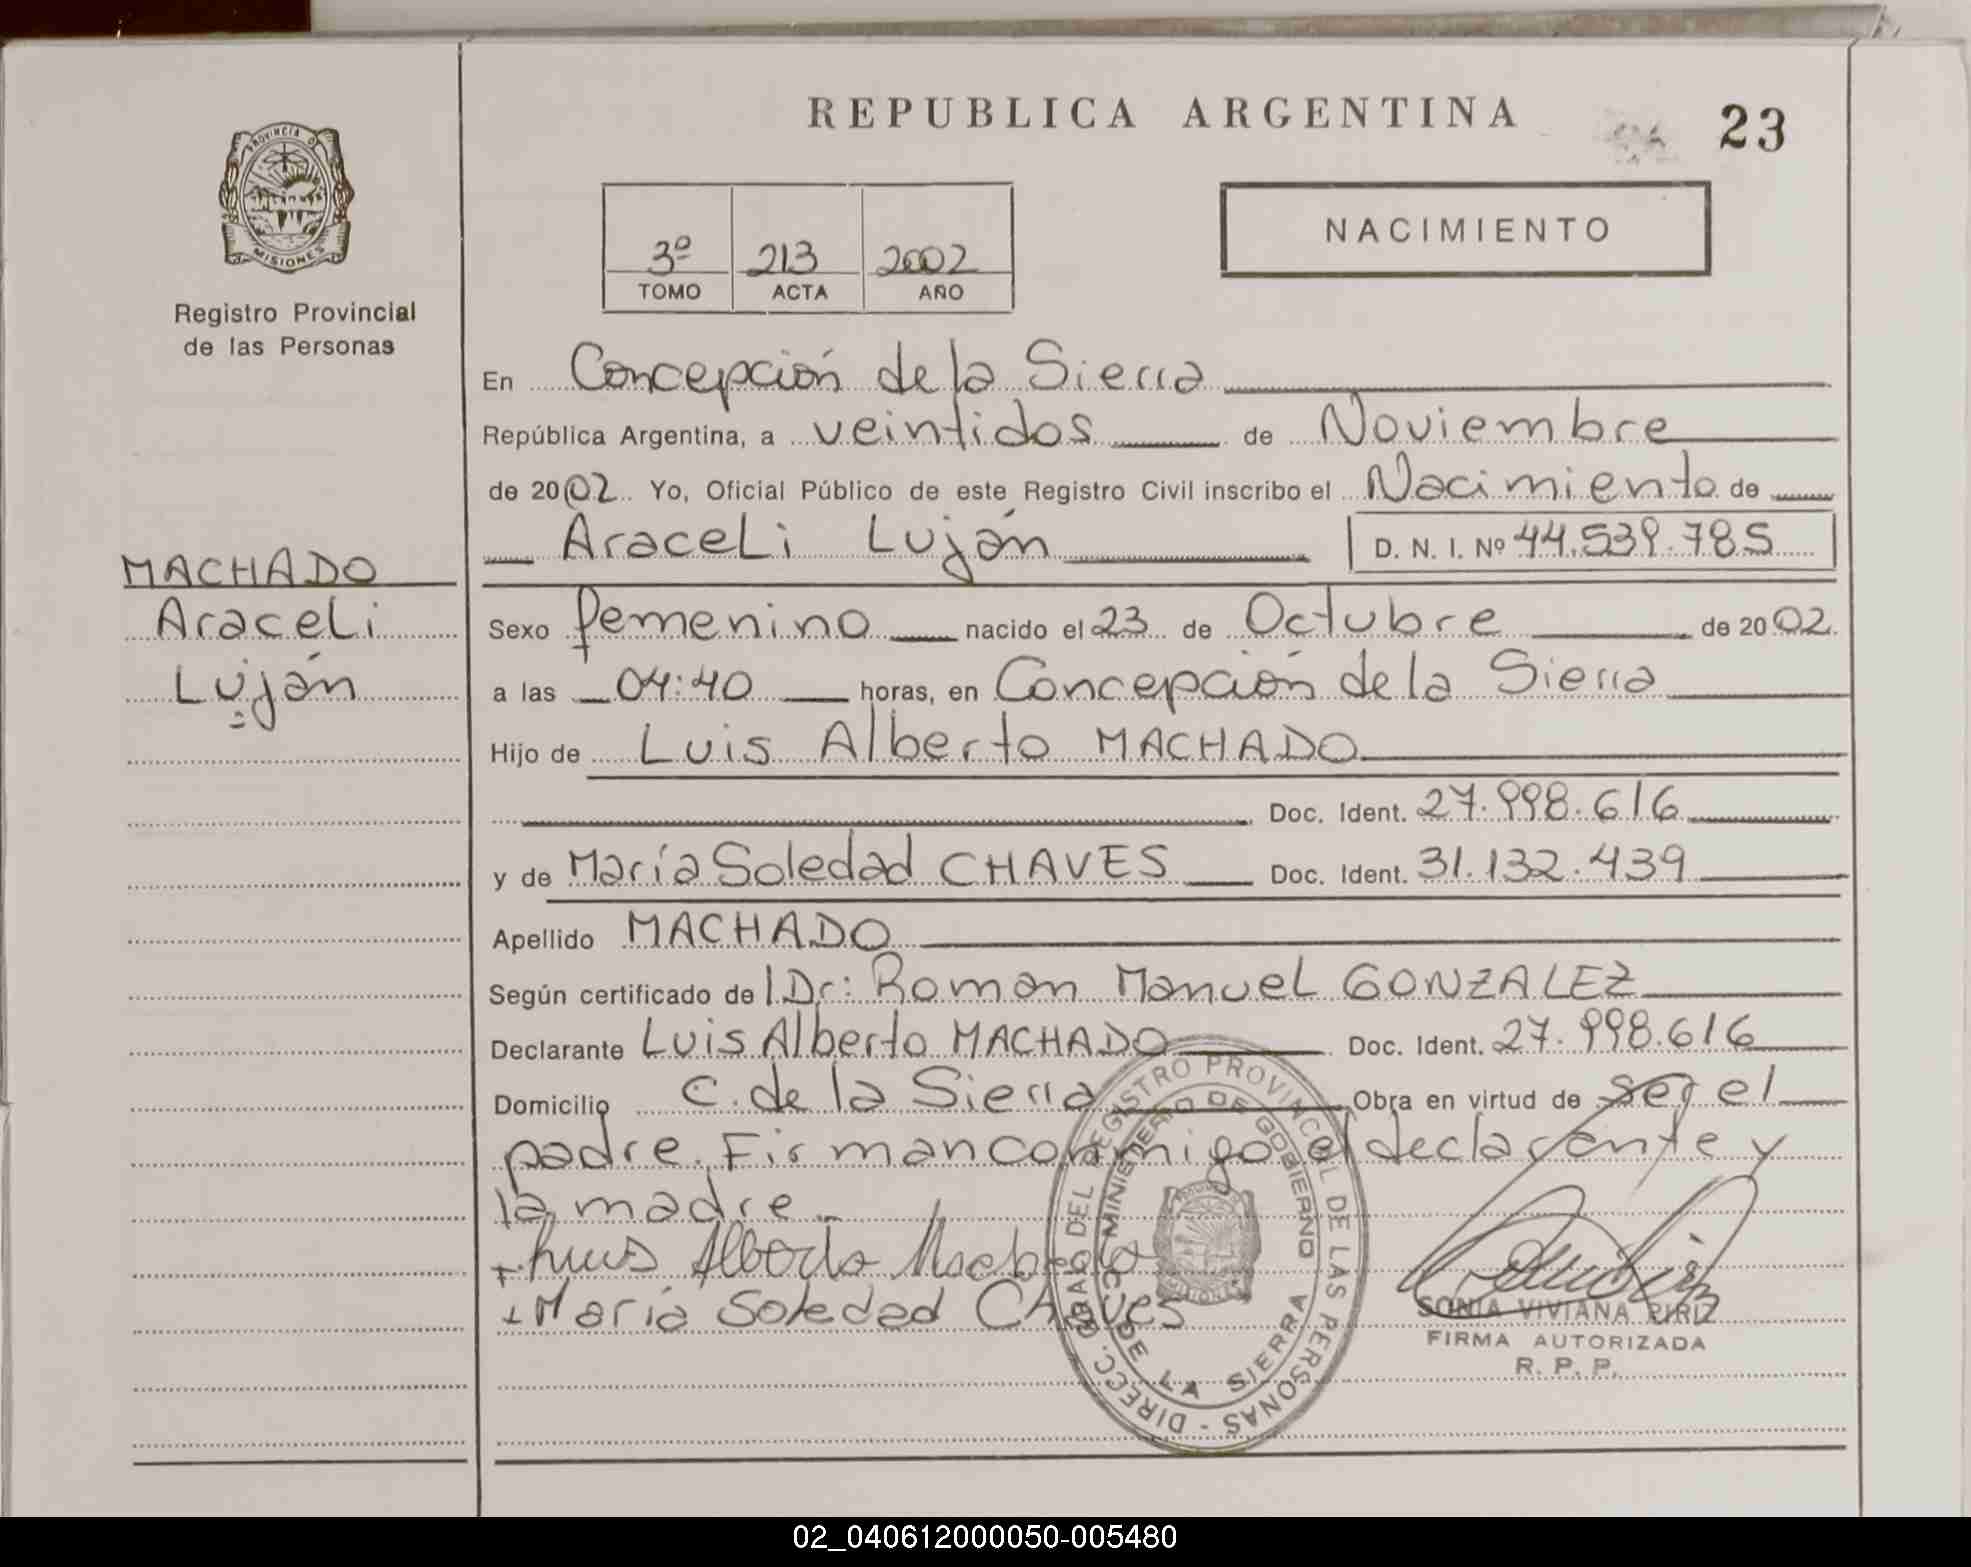 REPUBLICA ARGENTINA
23
PROVINCIA DE
MISIONES
Registro Provincial
de las Personas
3º 213 2002
TOMO ACTA AÑO
NACIMIENTO
En Concepción de la Sierra
República Argentina, a veintidos de Noviembre
de 2002. Yo, Oficial Público de este Registro Civil inscribo el Nacimiento de
Araceli Luján D. N. I. Nº 44.539.785
MACHADO
Araceli
Luján
Sexo femenino nacido el 23 de Octubre de 2002.
a las 04:40 horas, en Concepción de la Sierra
Hijo de Luis Alberto MACHADO
Doc. Ident. 27.998.616
y de María Soledad CHAVES Doc. Ident. 31.132.439
Apellido MACHADO
Según certificado del Dr: Roman Manuel GONZALEZ
Declarante Luis Alberto MACHADO Doc. Ident. 27.998.616
Domicilio C. de la Sierra Obra en virtud de ser el
padre. Firman conmigo el declarante y
la madre.
+ Luis Alberto Machado
+ María Soledad Chaves
DIRECC. GRAL. DEL REGISTRO PROVINCIAL DE LAS PERSONAS -
MINISTERIO DE GOBIERNO
C. DE LA SIERRA
SONIA VIVIANA PIRIZ
FIRMA AUTORIZADA
R. P. P.
02_040612000050-005480